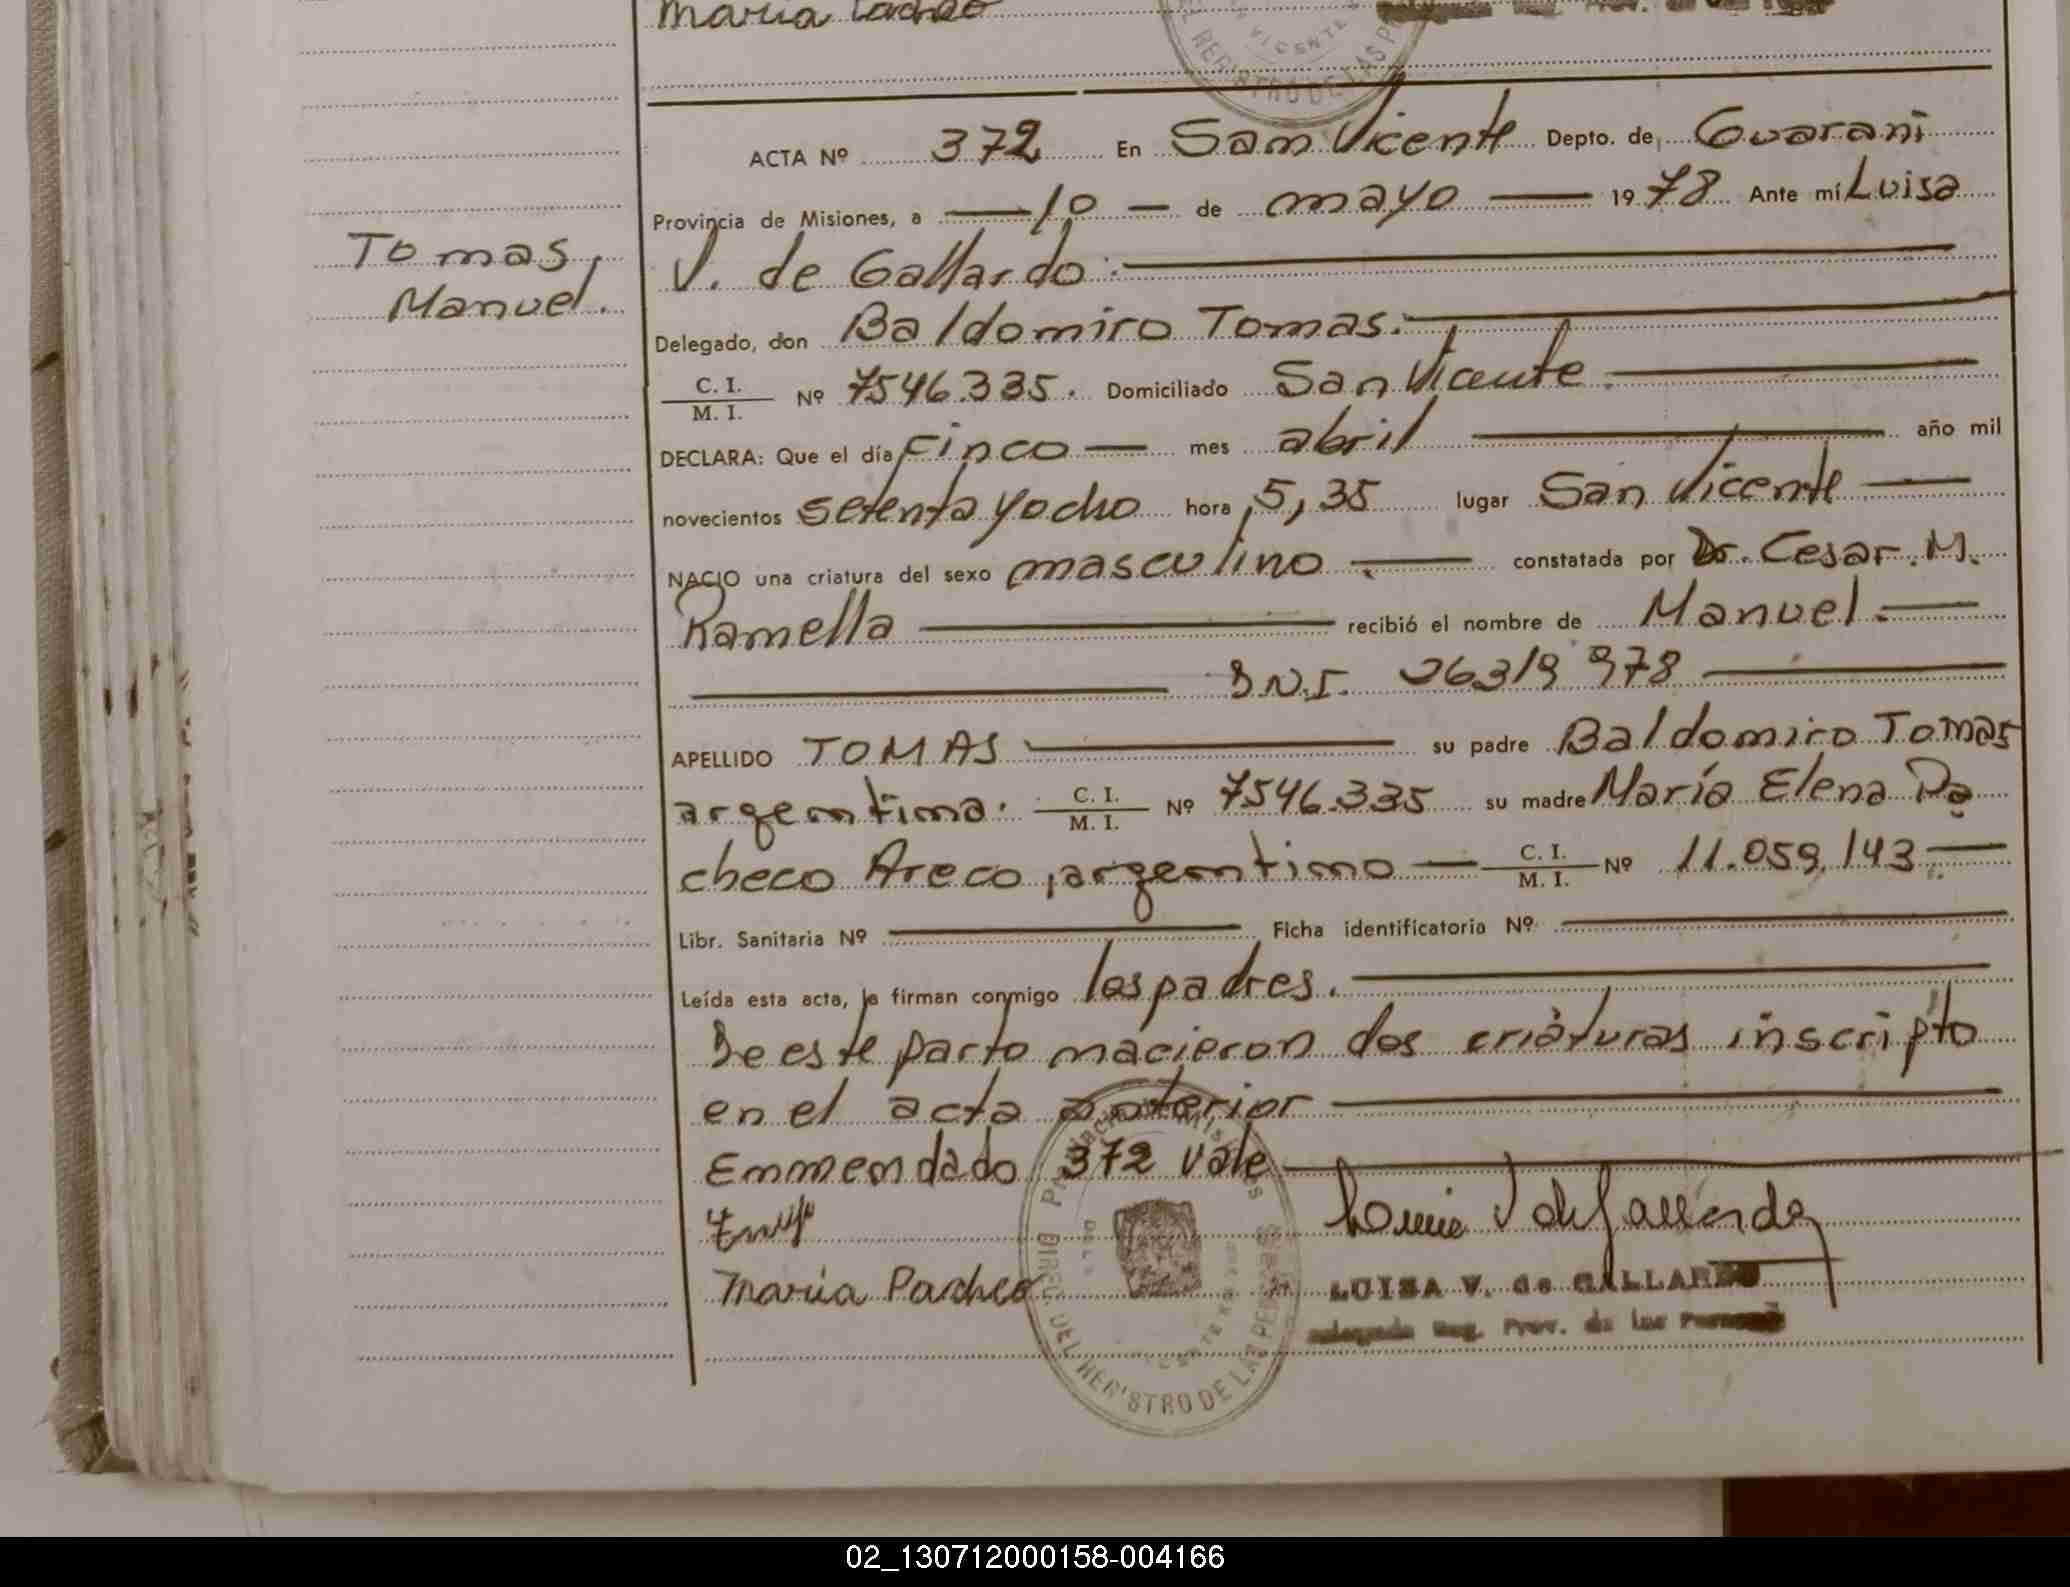 Maria Pacheco
VICENTE
REGISTRO DE LAS P
ACTA Nº 372 En San Vicente Depto. de Guarani
Provincia de Misiones, a — 10 — de mayo — 19 78 Ante mí Luisa
Tomas,
V. de Gallardo.
Manuel.
Delegado, don Baldomiro Tomas.
C. I.
M. I. Nº 7546.335. Domiciliado San Vicente.
DECLARA: Que el día cinco — mes abril — año mil
novecientos setenta y ocho hora 5,35 lugar San Vicente —
NACIO una criatura del sexo masculino — constatada por Dr. Cesar M.
Ramella — recibió el nombre de Manuel. —
D.N.I. 26319 978 —
APELLIDO TOMAS — su padre Baldomiro Tomas
argentina. C. I.
M. I. Nº 7546.335 su madre María Elena Pa
checo Areco, argentino — C. I.
M. I. Nº 11.059.143 —
Libr. Sanitaria Nº — Ficha identificatoria Nº —
Leída esta acta, la firman conmigo los padres. —
De este parto nacieron dos criaturas inscripto
en el acta anterior —
Enmendado 372 Vale —
Maria Pacheco
LUISA V. de GALLARDO
Delegada Reg. Prov. de las Personas
DIREC. DEL REGISTRO DE LAS PERSONAS
02_130712000158-004166